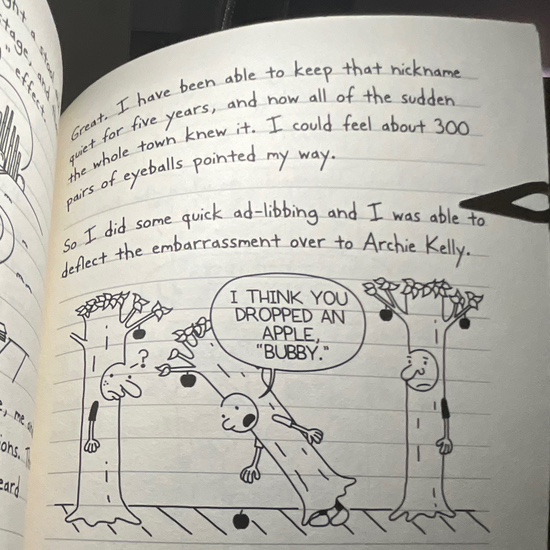 Great. I have been able to keep that nickname
quiet for five years, and now all of the sudden
the whole town knew it. I could feel about 300
pairs of eyeballs pointed my way.
So I did some quick ad-libbing and I was able to
deflect the embarrassment over to Archie Kelly.
?
I THINK YOU
DROPPED AN
APPLE,
"BUBBY."